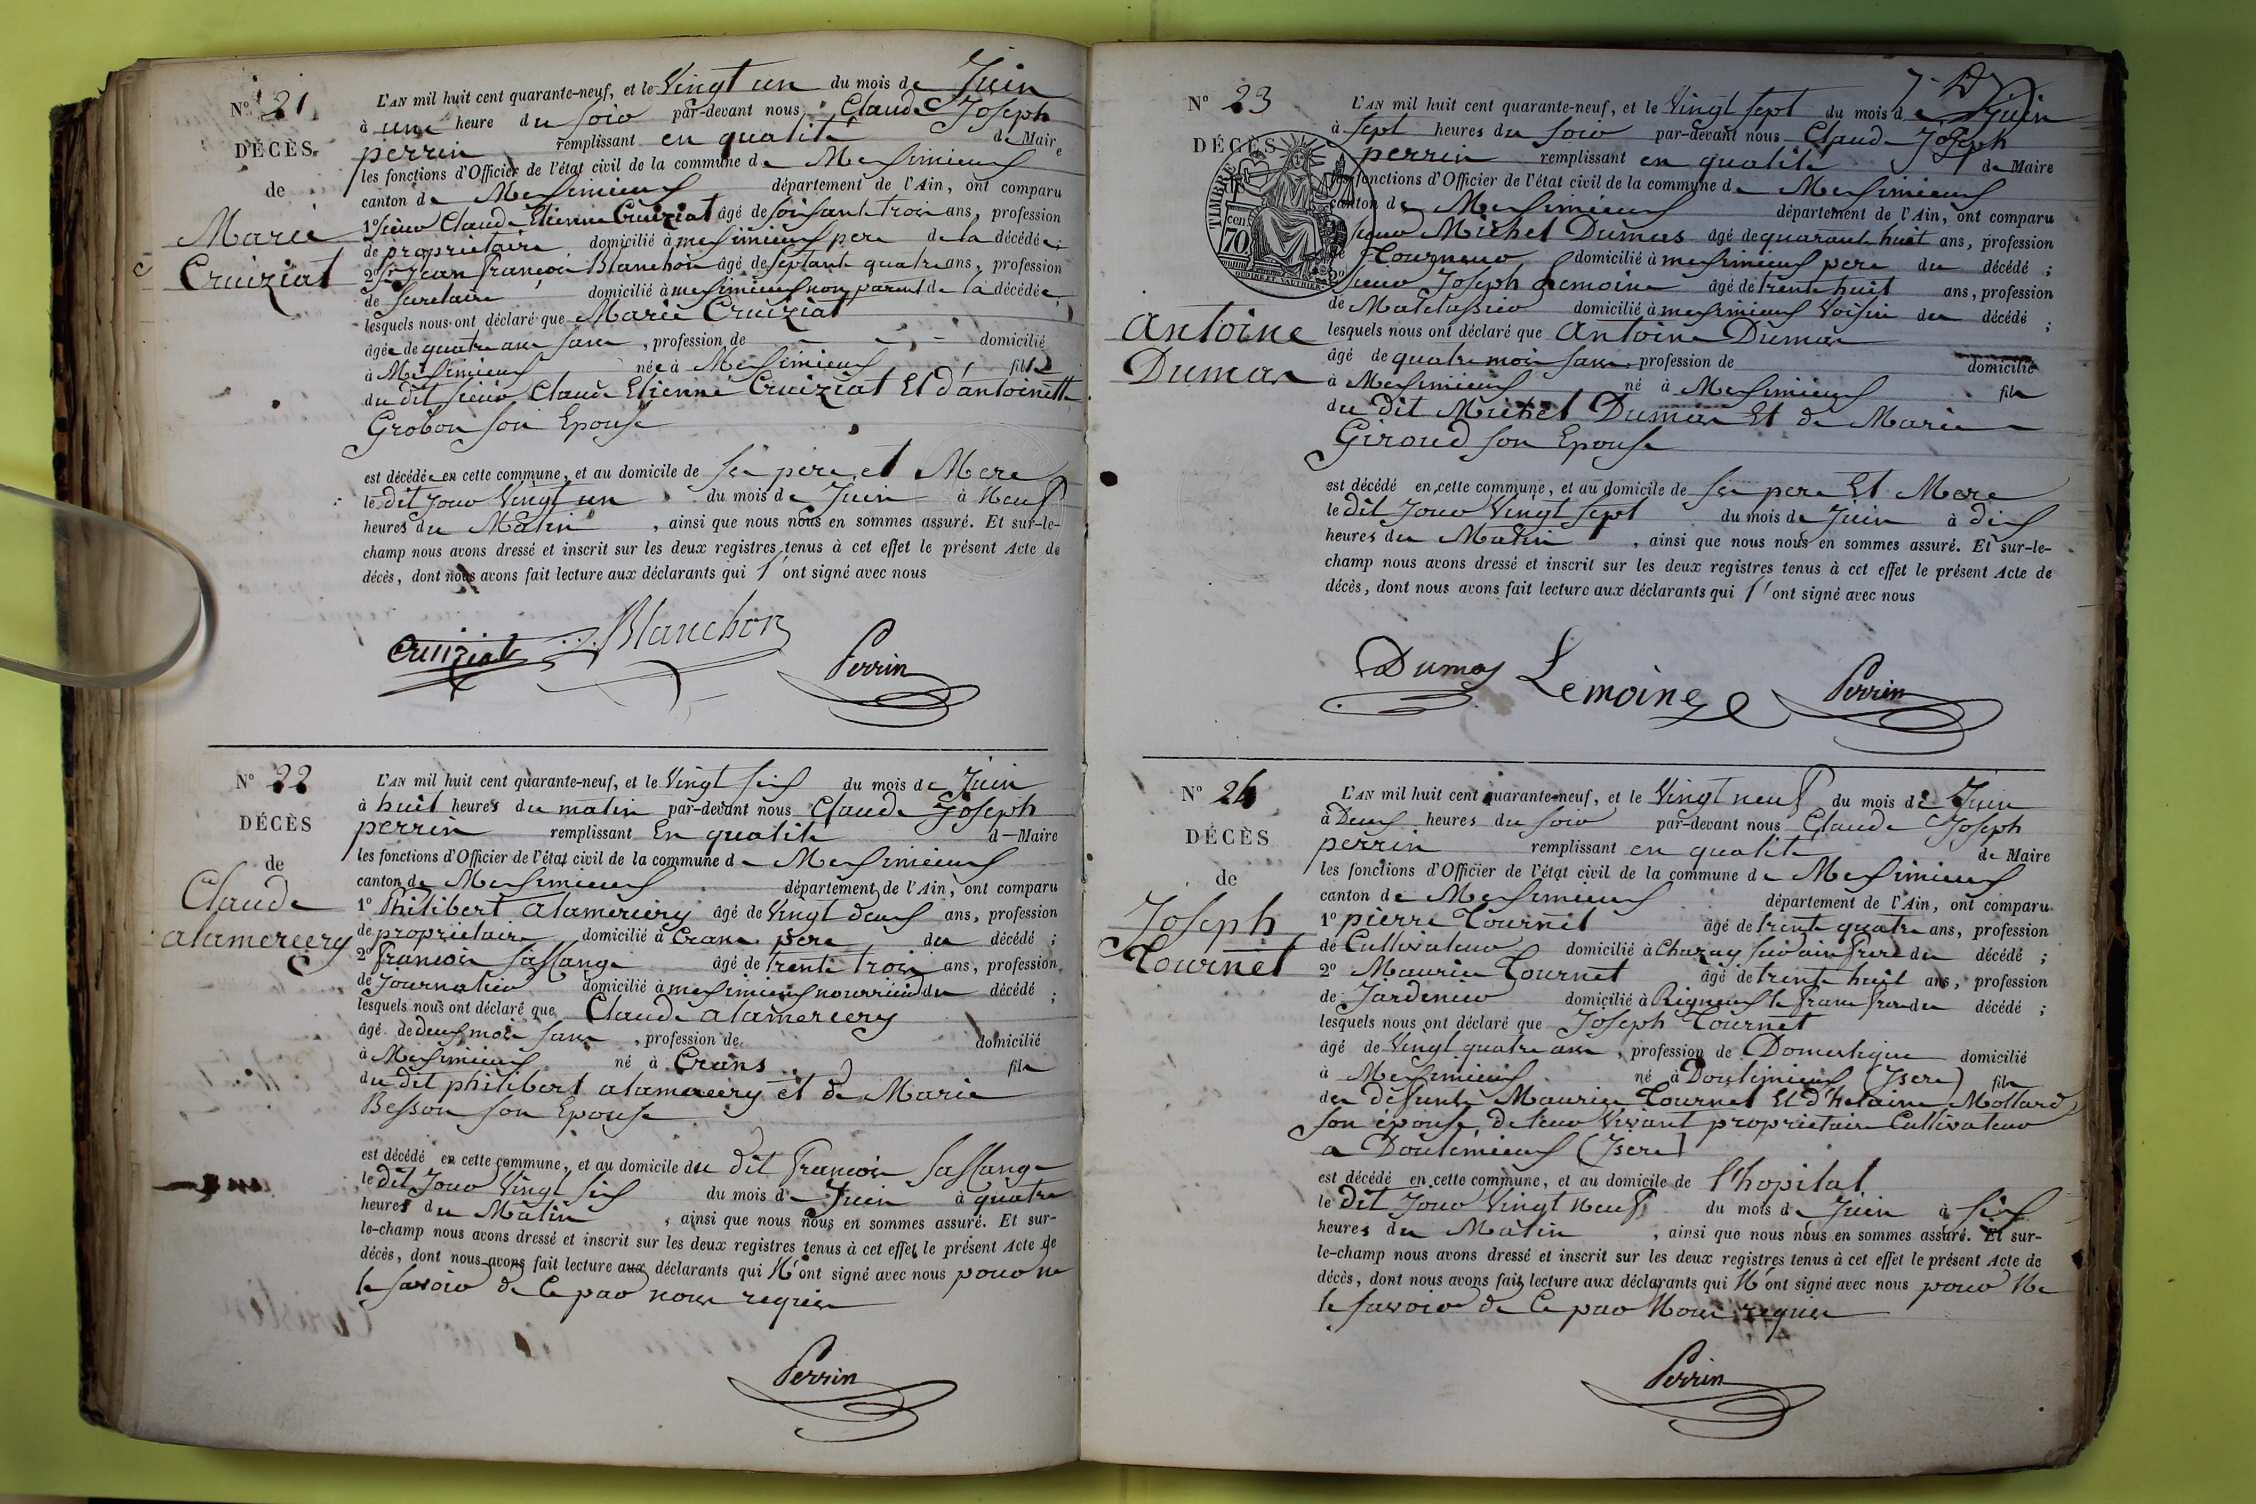 N° 21
DÉCÈS
de
Marie
Cruiziat
L'AN mil huit cent quarante-neuf, et le Vingt un du mois de Juin
à une heure du soir par-devant nous Claude Joseph
perrin remplissant en qualité de Maire
les fonctions d'Officier de l'état civil de la commune de Meximieux
canton de Meximieux département de l'Ain, ont comparu
1° sieur Claude Etienne Cruiziat âgé de soixante trois ans, profession
de proprietaire domicilié à meximieux pere de la décédée;
2° Sr Jean françois Blanchon âgé de septante quatre ans, profession
de secretaire domicilié à meximieux non parent de la décédée;
lesquels nous ont déclaré que Marie Cruiziat
âgée de quatre ans sans, profession de domicilié
à Meximieux née à Meximieux fille
du dit sieur Claude Etienne Cruiziat Et d'antoinette
Grobon son Epouse
est décédée en cette commune, et au domicile de ses pere et Mere
le dit jour Vingt un du mois de Juin à Neuf
heures du Matin, ainsi que nous nous en sommes assuré. Et sur-le-
champ nous avons dressé et inscrit sur les deux registres tenus à cet effet le présent Acte de
décès, dont nous avons fait lecture aux déclarants qui l'ont signé avec nous
Cruiziat Blanchon Perrin
N° 22
DÉCÈS
de
Claude
alamercery
L'AN mil huit cent quarante-neuf, et le Vingt six du mois de Juin
à huit heures du matin par-devant nous Claude Joseph
perrin remplissant En qualité d— Maire
les fonctions d'Officier de l'état civil de la commune de Meximieux
canton de Meximieux département de l'Ain, ont comparu
1° Philibert alamercery âgé de Vingt deux ans, profession
de proprietaire domicilié à Crans pere du décédé;
2° francois Sallange âgé de trente trois ans, profession
de Journalier domicilié à meximieux nourricier du décédé;
lesquels nous ont déclaré que Claude alamercery
âgé de deux mois sans, profession de domicilié
à Meximieux né à Crans fils
du dit philibert alamercery et de Marie
Besson son Epouse
est décédé en cette commune, et au domicile du dit francois Sallange
le dit Jour Vingt six du mois de Juin à quatre
heures du Matin, ainsi que nous nous en sommes assuré. Et sur-
le-champ nous avons dressé et inscrit sur les deux registres tenus à cet effet le présent Acte de
décès, dont nous avons fait lecture aux déclarants qui N'ont signé avec nous pour ne
le savoir de Ce par nous requis
Perrin
N° 23
DÉCÈS
TIMBRE
70 cen
antoine
Dumas
L'AN mil huit cent quarante-neuf, et le Vingt sept du mois de Juin
à sept heures du soir par-devant nous Claude Joseph
perrin remplissant en qualité de Maire
les fonctions d'Officier de l'état civil de la commune de Meximieux
canton de Meximieux département de l'Ain, ont comparu
sieur Michel Dumas âgé de quarante huit ans, profession
de Tourneur domicilié à meximieux pere du décédé;
2° sieur Joseph Lemoine âgé de trente huit ans, profession
de Matelassier domicilié à meximieux Voisin du décédé;
lesquels nous ont déclaré que Antoine Dumas
âgé de quatre mois sans profession de domicilié
à Meximieux né à Meximieux fils
du dit Michel Dumas Et de Marie
Giroud son Epouse
est décédé en cette commune, et au domicile de ses pere Et Mere
le dit Jour Vingt sept du mois de Juin à dix
heures du Matin, ainsi que nous nous en sommes assuré. Et sur-le-
champ nous avons dressé et inscrit sur les deux registres tenus à cet effet le présent Acte de
décès, dont nous avons fait lecture aux déclarants qui l'ont signé avec nous
Dumas Lemoine Perrin
N° 24
DÉCÈS
de
Joseph
Tournet
L'AN mil huit cent quarante-neuf, et le Vingt neuf du mois de Juin
à Deux heures du soir par-devant nous Claude Joseph
perrin remplissant en qualité de Maire
les fonctions d'Officier de l'état civil de la commune de Meximieux
canton de Meximieux département de l'Ain, ont comparu
1° pierre Tournet âgé de trente quatre ans, profession
de Cultivateur domicilié à frere du décédé;
2° Maurice Tournet âgé de trente huit ans, profession
de Jardinier domicilié à Rigneux le franc frere du décédé;
lesquels nous ont déclaré que Joseph Tournet
âgé de Vingt quatre ans, profession de Domestique domicilié
à Meximieux né à (Isere) fils
de défunts Maurice Tournet Et d' Mottard
son épouse de leur Vivant proprietaire Cultivateur
a (Isere)
est décédé en cette commune, et au domicile de l'hopital
le dit Jour Vingt Neuf du mois de Juin à six
heures du Matin, ainsi que nous nous en sommes assuré. Et sur-
le-champ nous avons dressé et inscrit sur les deux registres tenus à cet effet le présent Acte de
décès, dont nous avons fait lecture aux déclarants qui N'ont signé avec nous pour Ne
le savoir de Ce par Nous requis
Perrin